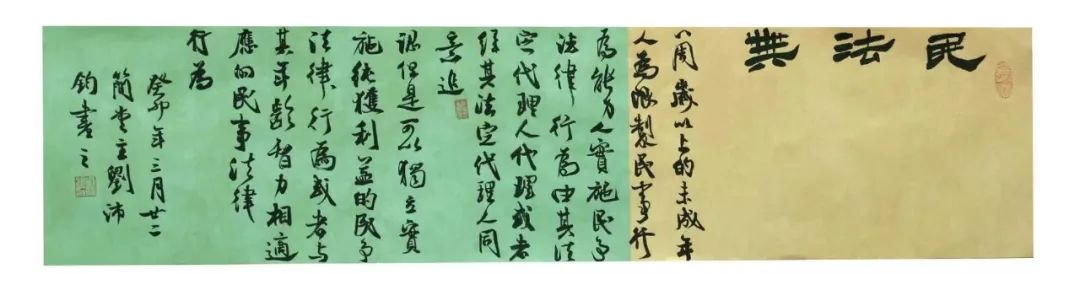 民法典
八周歲以上的未成年
人為限製民事行
為能力人實施民事
法律行為由其法
定代理人代理或者
經其法定代理人同
意追
認但是可以獨立實
施純獲利益的民事
法律行為或者與
其年齡智力相適
應的民事法律
行為
癸卯年三月廿二
簡堂主劉沛
鈞書之